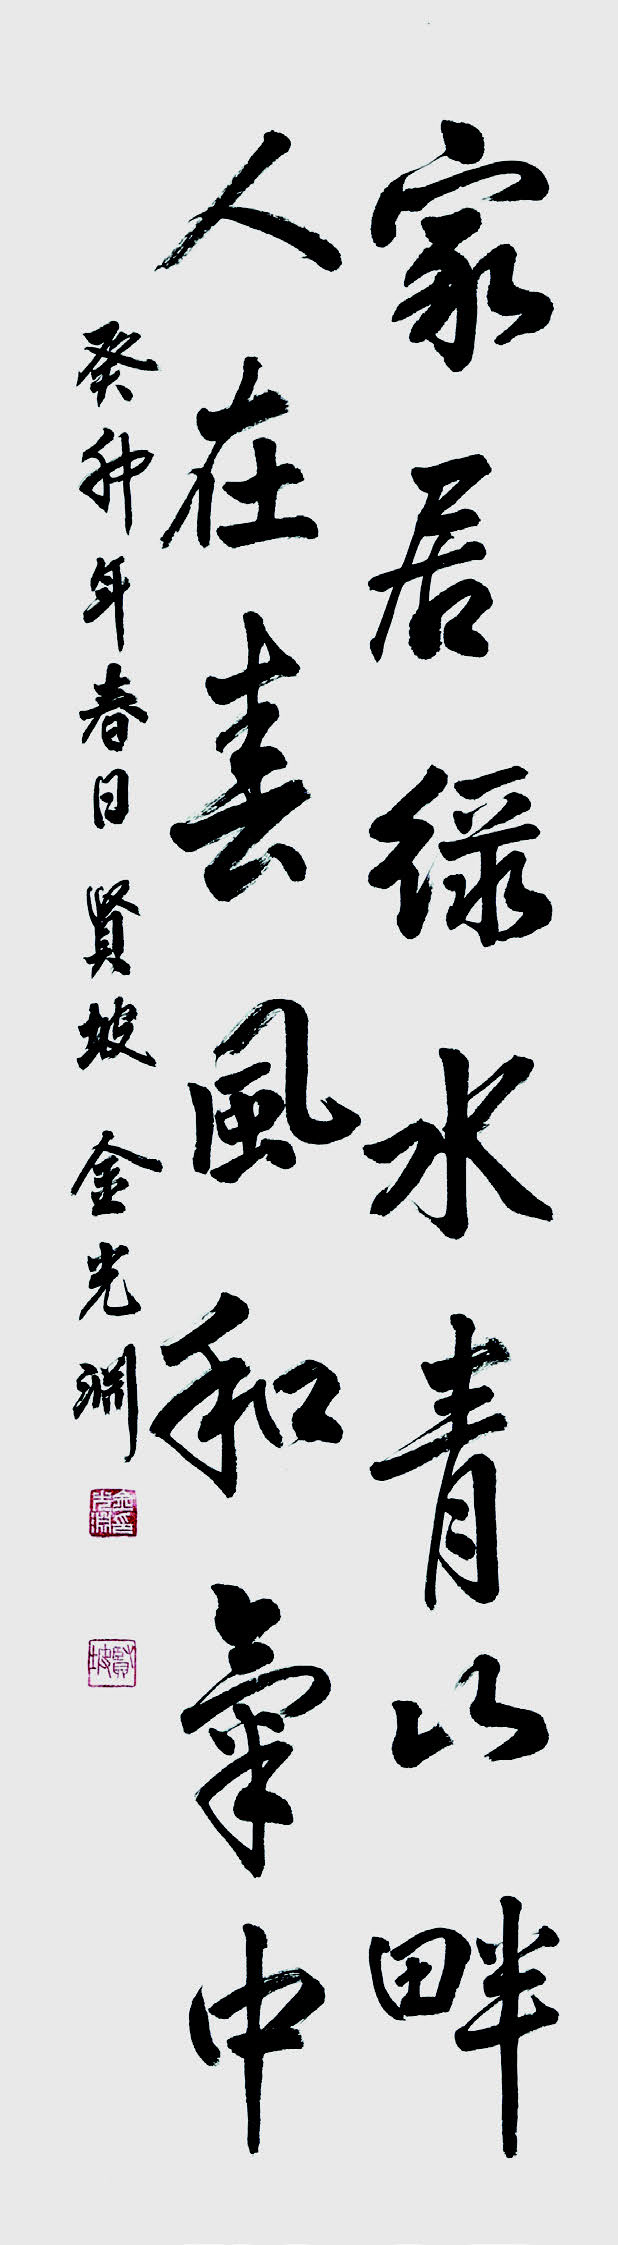 家居綠水青山畔
人在春風和氣中
癸卯年春日 賢坡 金光淵
金光淵印
賢坡